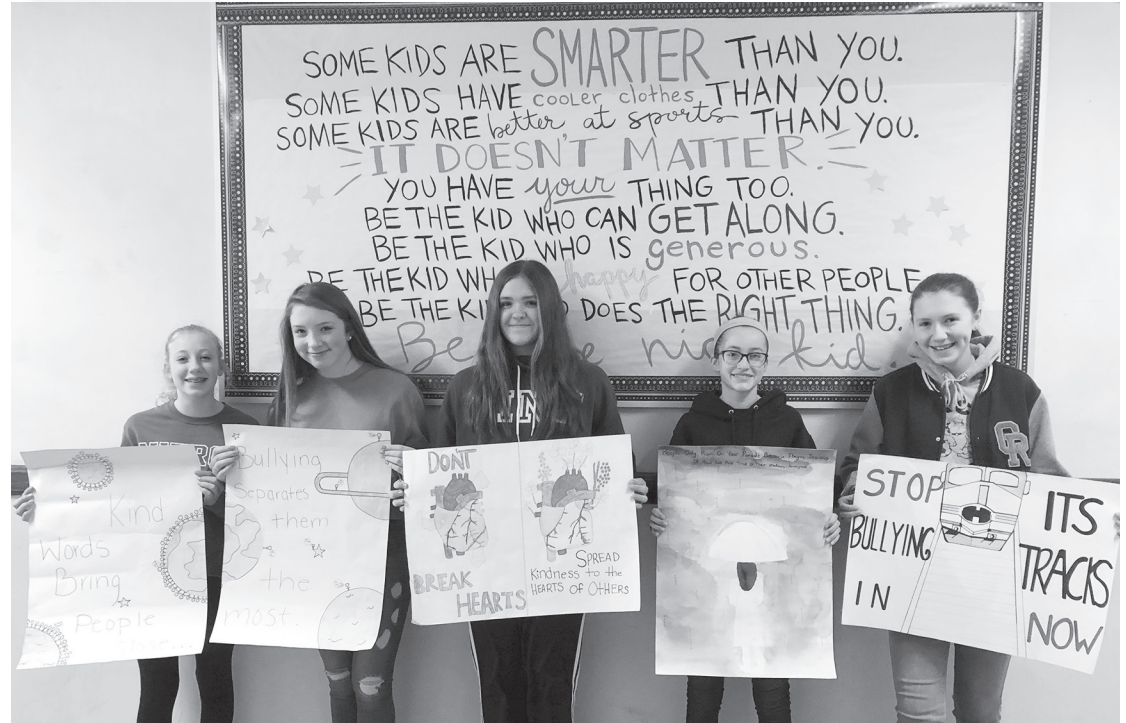 SOME KIDS ARE SMARTER THAN YOU.
SOME KIDS HAVE cooler clothes THAN YOU.
SOME KIDS ARE better at sports THAN YOU.
IT DOESN'T MATTER.
YOU HAVE your THING TOO.
BE THE KID WHO CAN GET ALONG.
BE THE KID WHO IS generous.
BE THE KID WH happy FOR OTHER PEOPLE
BE THE KI DOES THE RIGHT THING.
Be nice kid.
Kind
Words
Bring
People
Bullying
Separates
them
the
most.
DON'T
BREAK
HEARTS
SPREAD
Kindness to the
HEARTS OF OTHERS
People Only Rain On Your
STOP
BULLYING
IN
ITS
TRACKS
NOW
GR